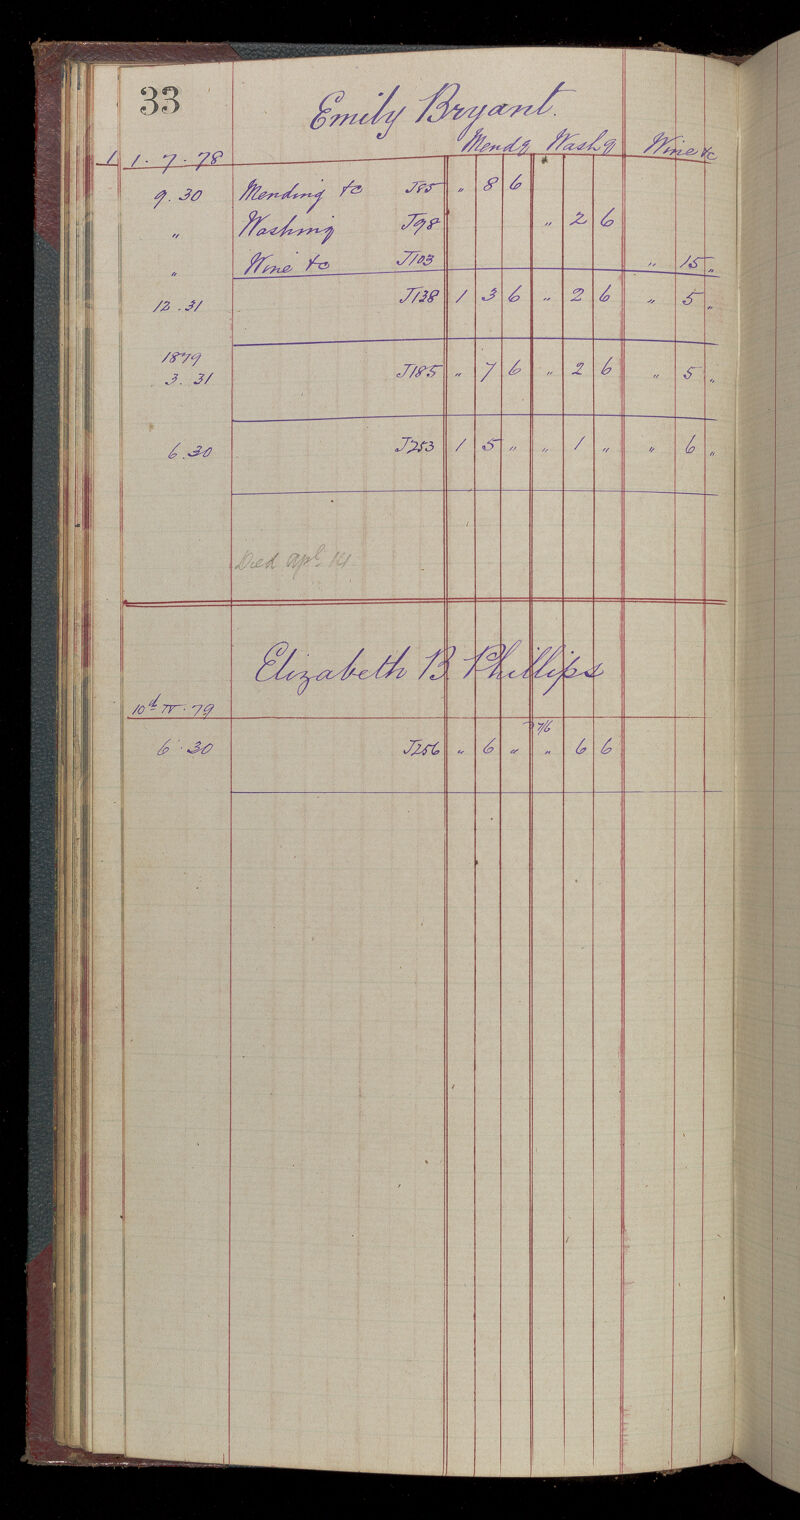 33
Emily Bryant.
Mendg Washg Wine &c
1 1.7.78
9.30 Mending &c J85 " 8 6
" Washing J98 " 2 6
" Wine &c J103 " 15 "
12.31 J138 1 3 6 " 2 6 " 5 "
1879
3.31 J185 " 7 6 " 2 6 " 5 "
6.30 J253 1 5 " " 1 " " 6 "
Died Apl 14
Elizabeth B. Phillips
10d IV.79
7/6
6.30 J256 " 6 " " 6 6